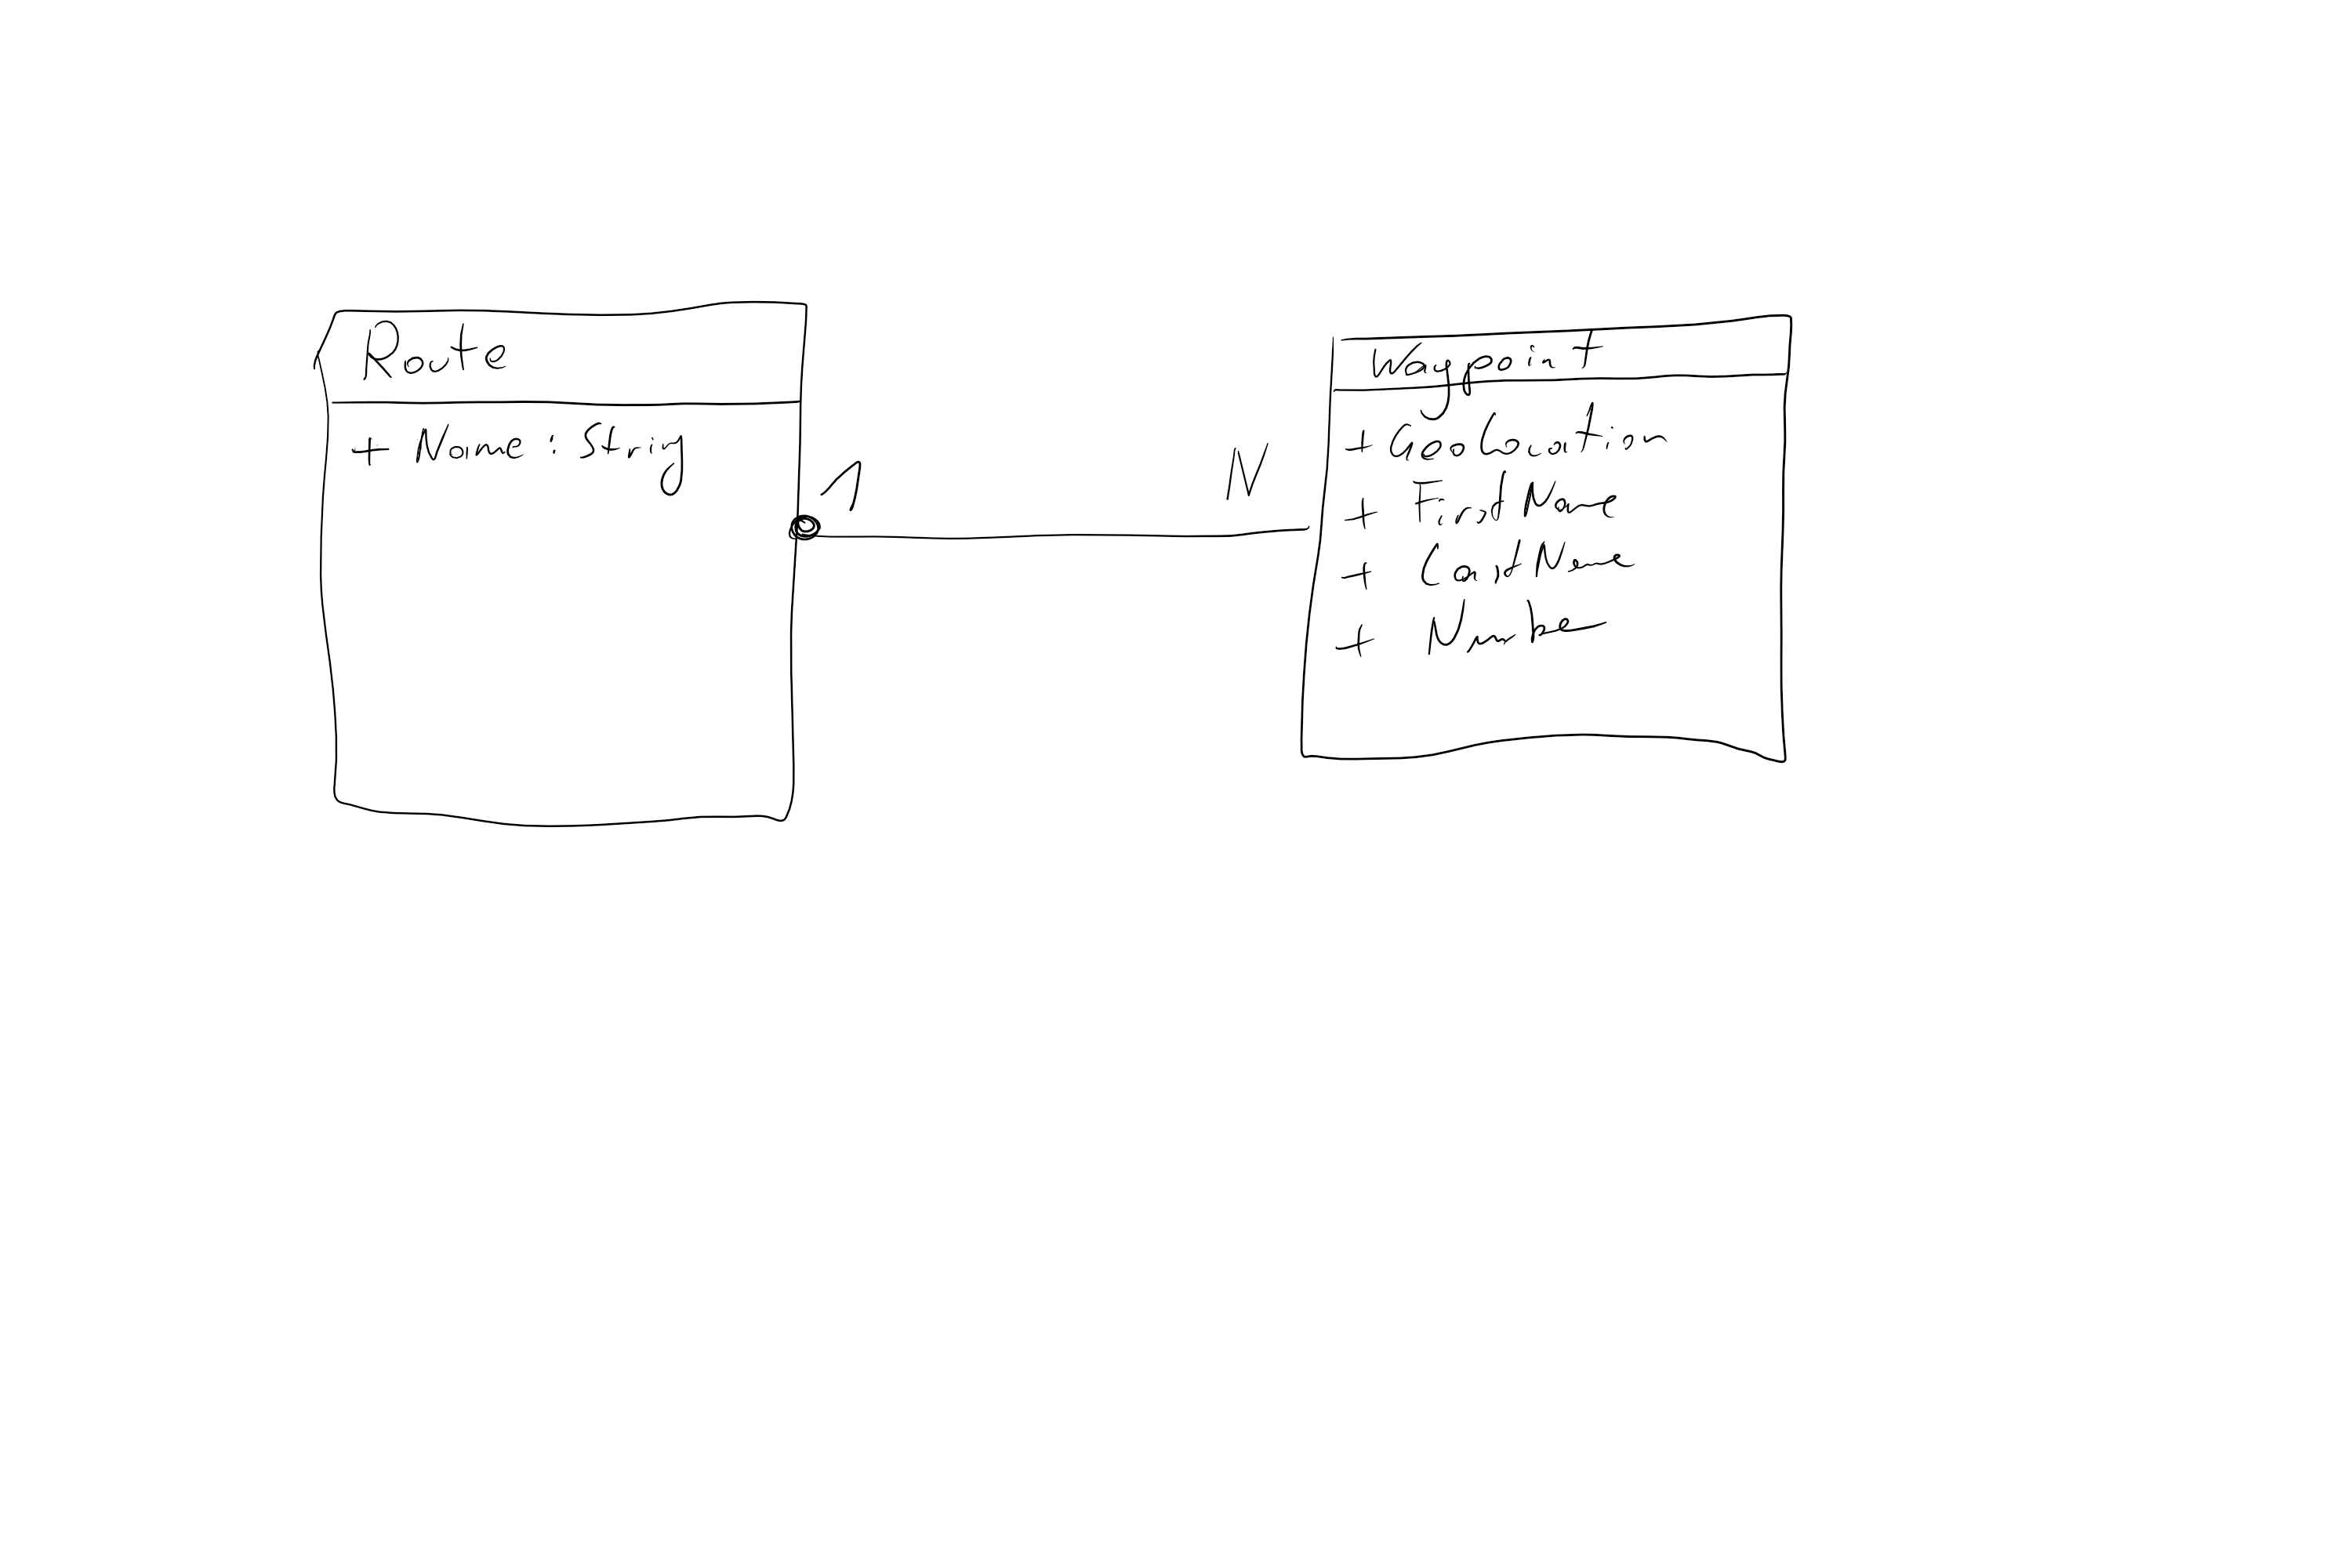 Route
+ Name : String
1
N
Waypoint
+ GeoLocation
+ FirstName
+ LastName
+ Number